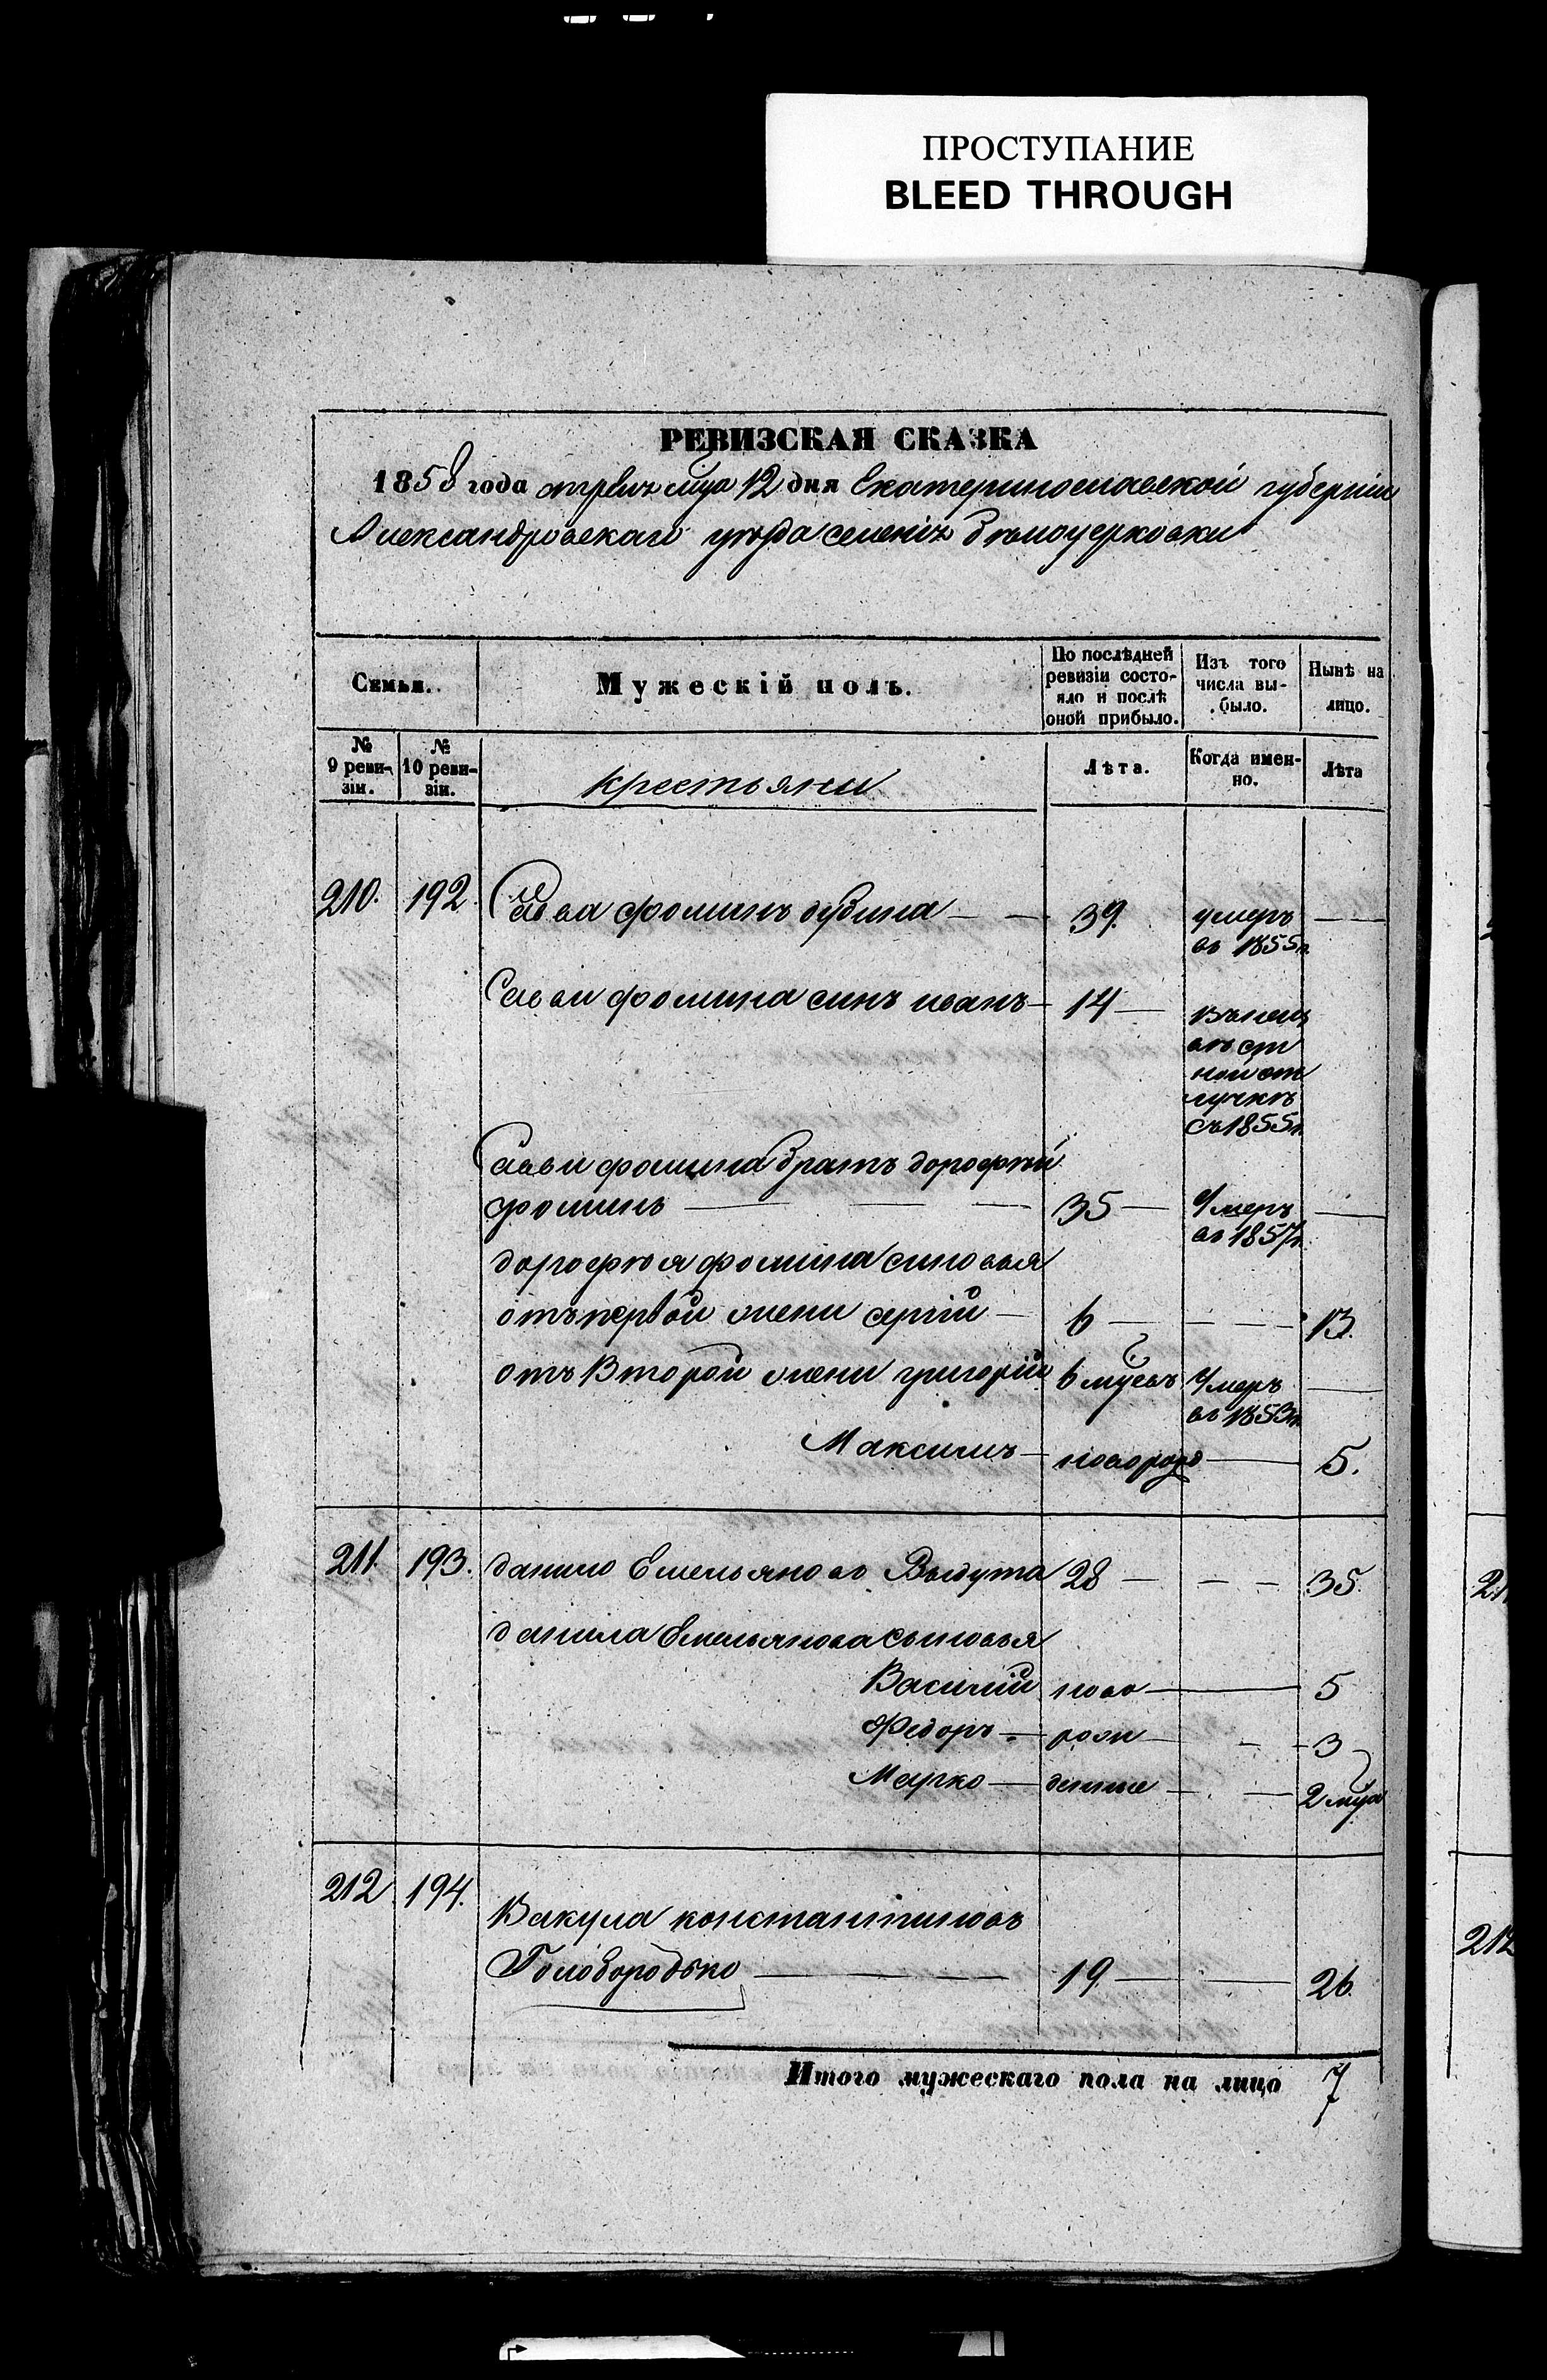 ПРОСТУПАНИЕ
BLEED THROUGH
РЕВИЗСКАЯ СКАЗКА
1858 года апреля мца 12 дня Екатеринославской губерніи
Александровскаго уѣзда селенія бѣлоцерковки
Семьи.
Мужескій полъ.
По послѣдней ревизіи состояло и послѣ оной прибыло.
Изъ того числа выбыло.
Нынѣ на лицо.
№ 9 ревизіи.
№ 10 ревизіи.
крестьяни
Лѣта.
Когда именно.
Лѣта
210. 192 Савва фоминъ дубина 39. умеръ
въ 1855г.
Саввы фомина синъ иванъ 14
въ неиз
вѣст
ной от
лучкѣ
съ 1855г.
Саввы фомина братъ дорофѣй
фоминъ 35 Умеръ
въ 1857г.
дорофѣя фомина синовья
отъ первой жени сергій 6 13.
отъ Второй жени григорій 6 мцевъ Умеръ
въ 1853г.
Максимъ новорожд 5.
211. 193. данило Емельяновъ 28 35.
данила Емельянова сыновья
Василій ново 5
Федоръ рож 3
Марко денные 2 мца
212 194. Вакула константиновъ
Голобородько 19 26.
Итого мужескаго пола на лицо 7